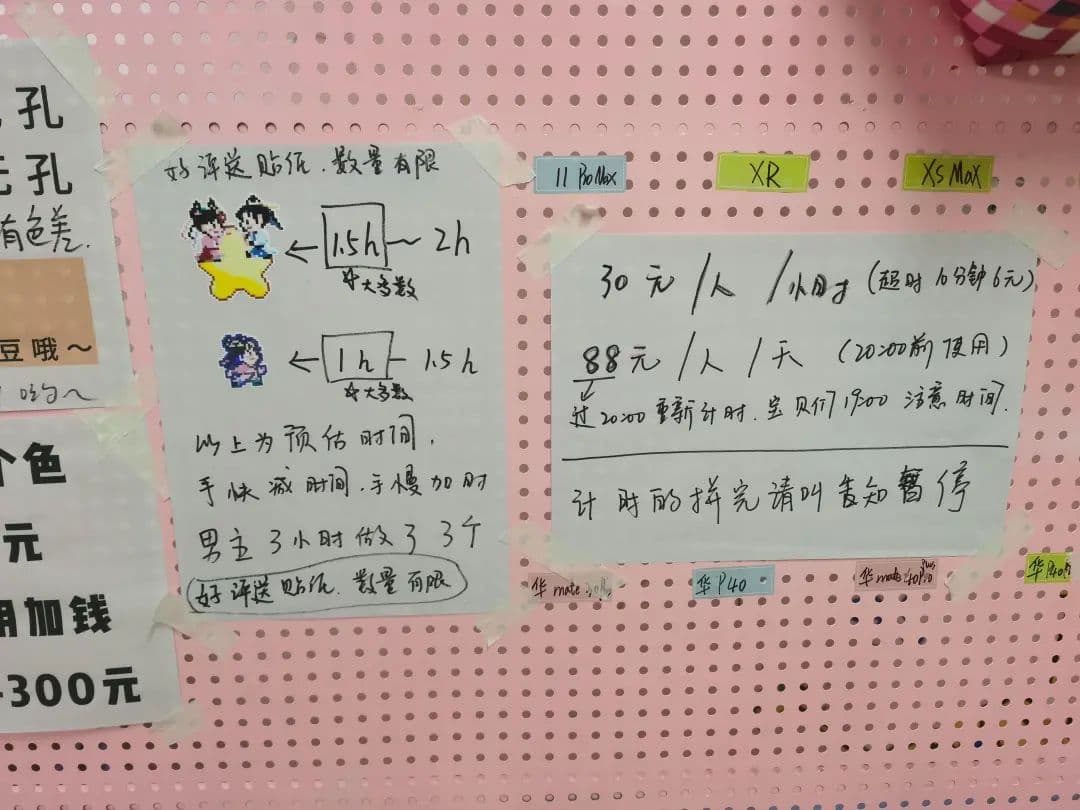 孔
孔
有色差.
豆哦～
个色
元
加钱
300元
好评送贴纸.数量有限
1.5h～2h
☆大多数
1h－1.5h
☆大多数
以上为预估时间，
手快减时间，手慢加时
男主3小时做了3个
好评送贴纸.数量有限
11 ProMax
XR
XS MaX
30元/人/小时(超时10分钟6元)
88元/人/天(20:00前使用)
过20:00重新计时.宝贝们19:00注意时间.
计时的拼完请叫告知暂停
华mate
华P40
华mate40Pro
Plus
华P40